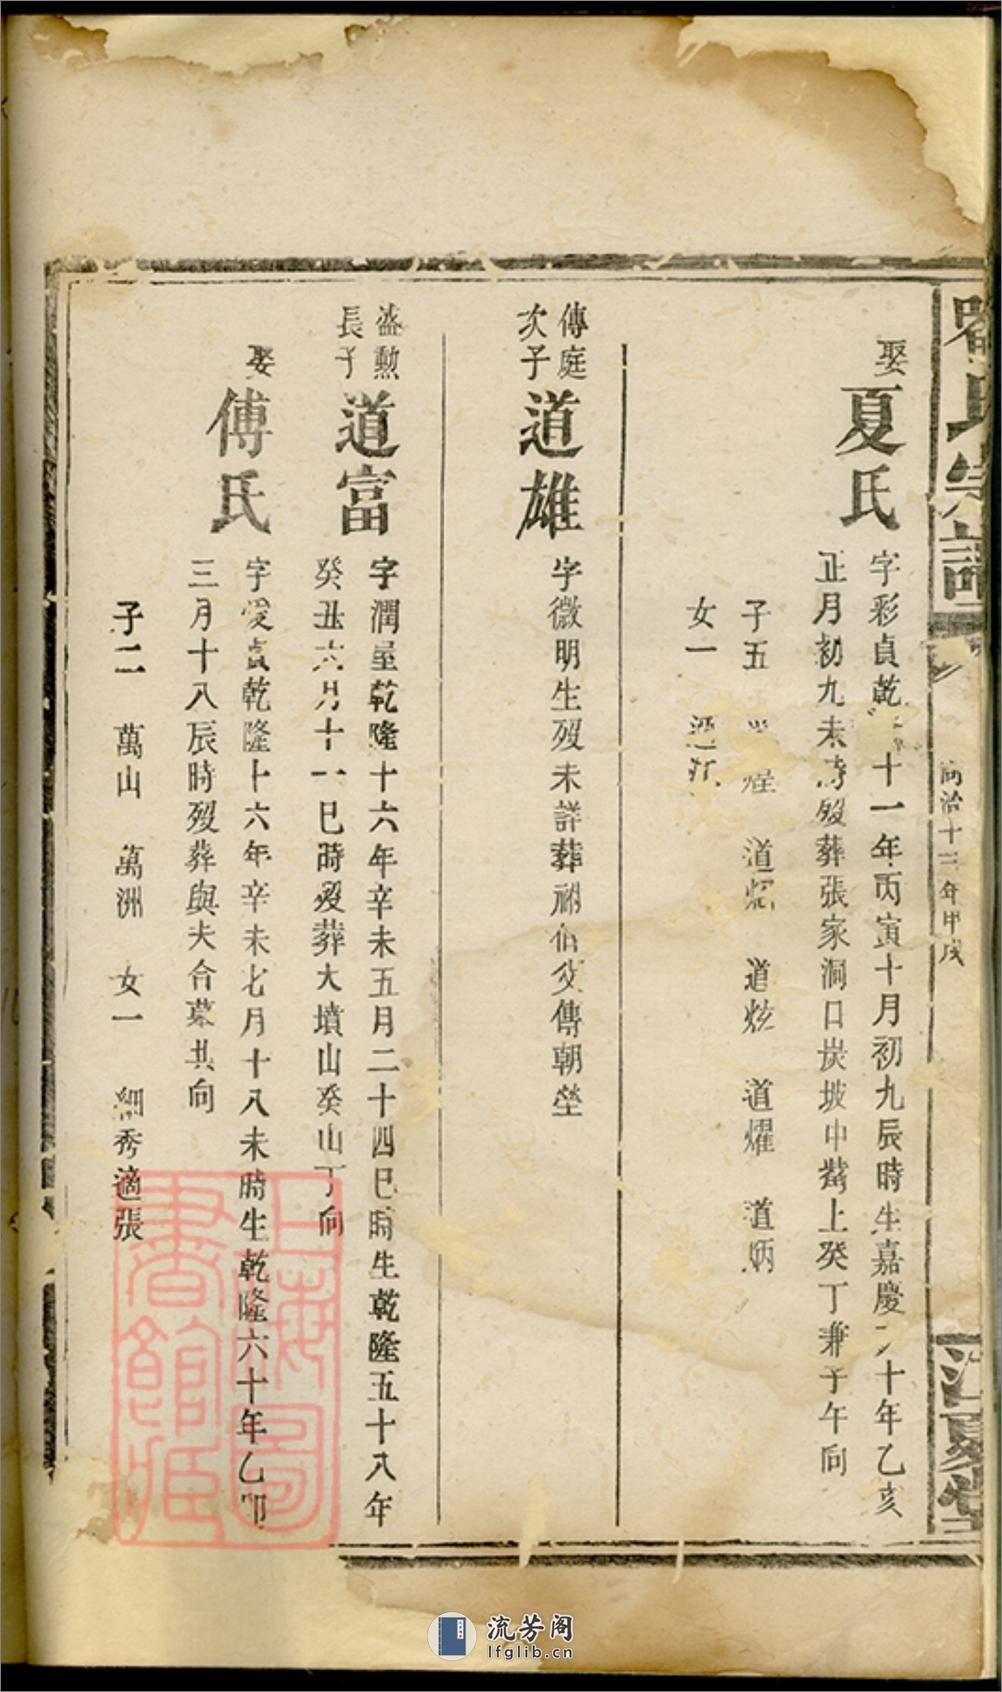 喻氏宗譜
同治十三年甲戌
江夏堂
娶
夏氏
字彩貞乾 十一年丙寅十月初九辰時生嘉慶二十年乙亥
正月初九未時殁葬張家洞口炭坡中嘴上癸丁兼子午向
子五 道 道 道炫 道耀 道炳
女一 適
傳庭
次子
道雄
字微明生殁未詳葬祔伯父傳朝塋
盛勲
長子
道富
字潤屋乾隆十六年辛未五月二十四巳時生乾隆五十八年
癸丑六月十一巳時殁葬大墳山癸山丁向
娶
傅氏
字愛貞乾隆十六年辛未七月十八未時生乾隆六十年乙卯
三月十八辰時殁葬與夫合墓共向
子二 萬山 萬洲 女一 細秀適張
上海圖
書館藏
流芳阁
lfglib.cn